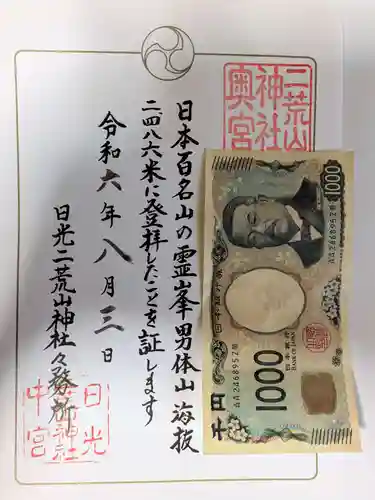 二荒山
神社
奥宮
日本百名山の霊峯男体山海抜
二四八六米に登拝したことを証します
令和六年八月三日
日光二荒山神社々務所
日光
神社
中宮
1000
AA2468952
日本銀行券
千円
1000
日本銀行
BANK OF JAPAN
AA2468952